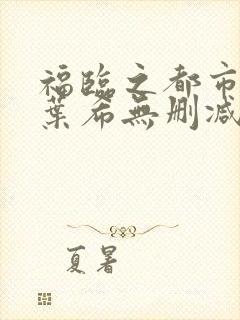 福臨之都市
葉希無刪減
夏暑